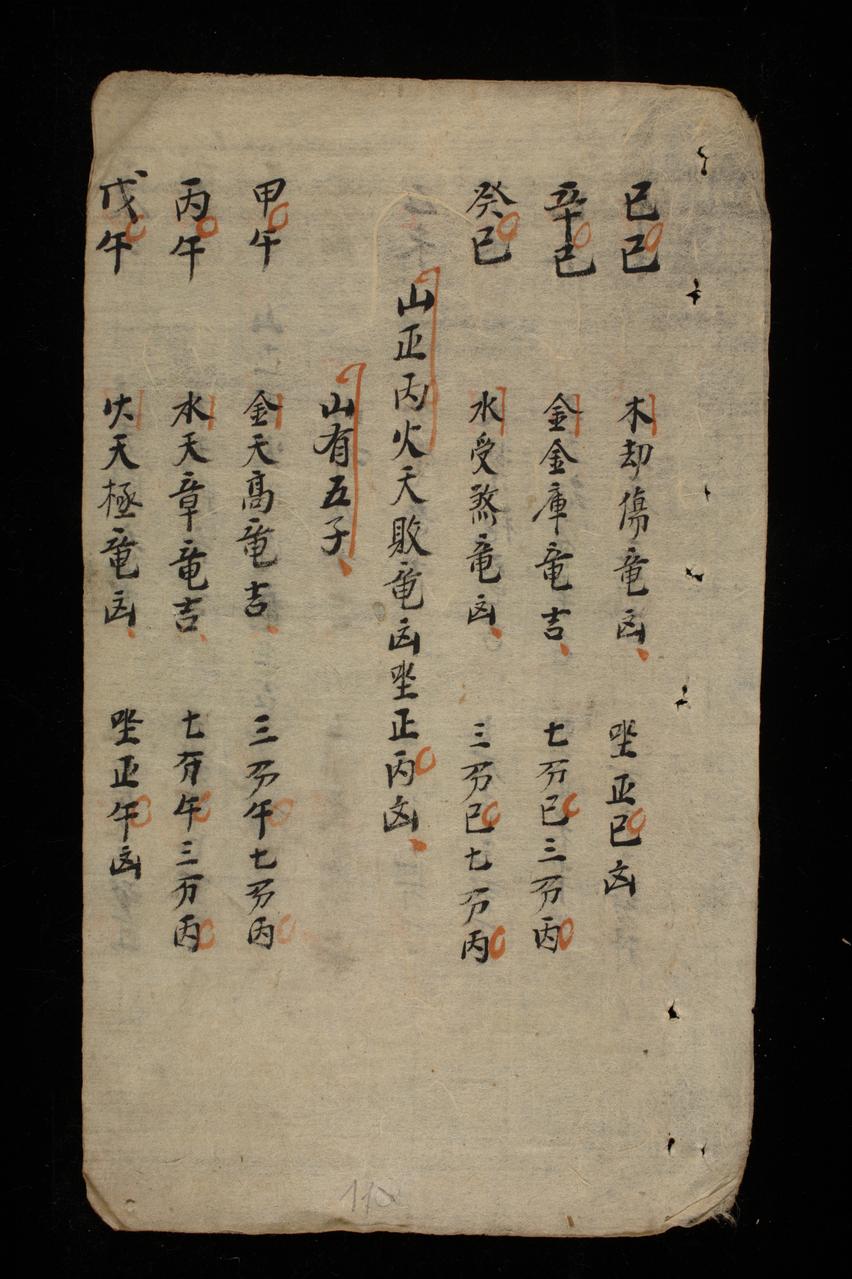 己巳 木却傷竜凶 坐正巳凶
辛巳 金金庫竜吉 七分巳三分丙
癸巳 水受煞竜凶 三分巳七分丙
山正丙火天敗竜凶坐正丙凶
山有五子
甲午 金天高竜吉 三分午七分丙
丙午 水天章竜吉 七分午三分丙
戊午 火天極竜凶 坐正午凶
110